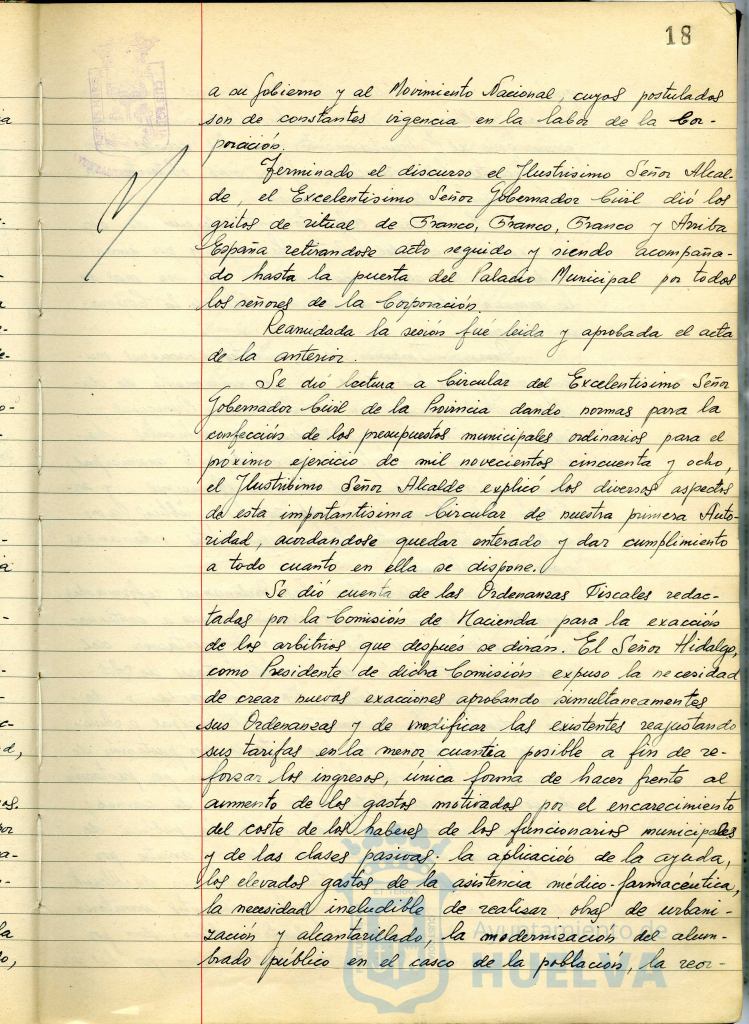 18
a su Gobierno y al Movimiento Nacional, cuyos postulados
son de constantes vigencia en la labor de la Cor-
poración.
Terminado el discurso el Ilustrisimo Señor Alcal-
de, el Excelentisimo Señor Gobernador Civil dió los
gritos de ritual de Franco, Franco, Franco y Arriba
España retirandose acto seguido y siendo acompaña-
do hasta la puerta del Palacio Municipal por todos
los señores de la Corporación.
Reanudada la sesión fué leida y aprobada el acta
de la anterior.
Se dió lectura a Circular del Excelentisimo Señor
Gobernador Civil de la Provincia dando normas para la
confección de los presupuestos municipales ordinarios para el
próximo ejercicio de mil novecientos cincuenta y ocho,
el Ilustrisimo Señor Alcalde explicó los diversos aspectos
de esta importantisima Circular de nuestra primera Auto-
ridad, acordandose quedar enterado y dar cumplimiento
a todo cuanto en ella se dispone.
Se dió cuenta de las Ordenanzas Fiscales redac-
tadas por la Comisión de Hacienda para la exacción
de los arbitrios que después se dirán. El Señor Hidalgo,
como Presidente de dicha Comisión expuso la necesidad
de crear nuevas exacciones aprobando simultaneamentes
sus Ordenanzas y de modificar las existentes reajustando
sus tarifas en la menor cuantía posible a fin de re-
forzar los ingresos, única forma de hacer frente al
aumento de los gastos motivados por el encarecimiento
del coste de los haberes de los funcionarios municipales
y de las clases pasivas; la aplicación de la ayuda,
los elevados gastos de la asistencia médico-farmacéutica,
la necesidad ineludible de realizar obras de urbani-
zación y alcantarillado, la modernización del alum-
brado público en el casco de la población, la reor-
Ayuntamiento de
HUELVA